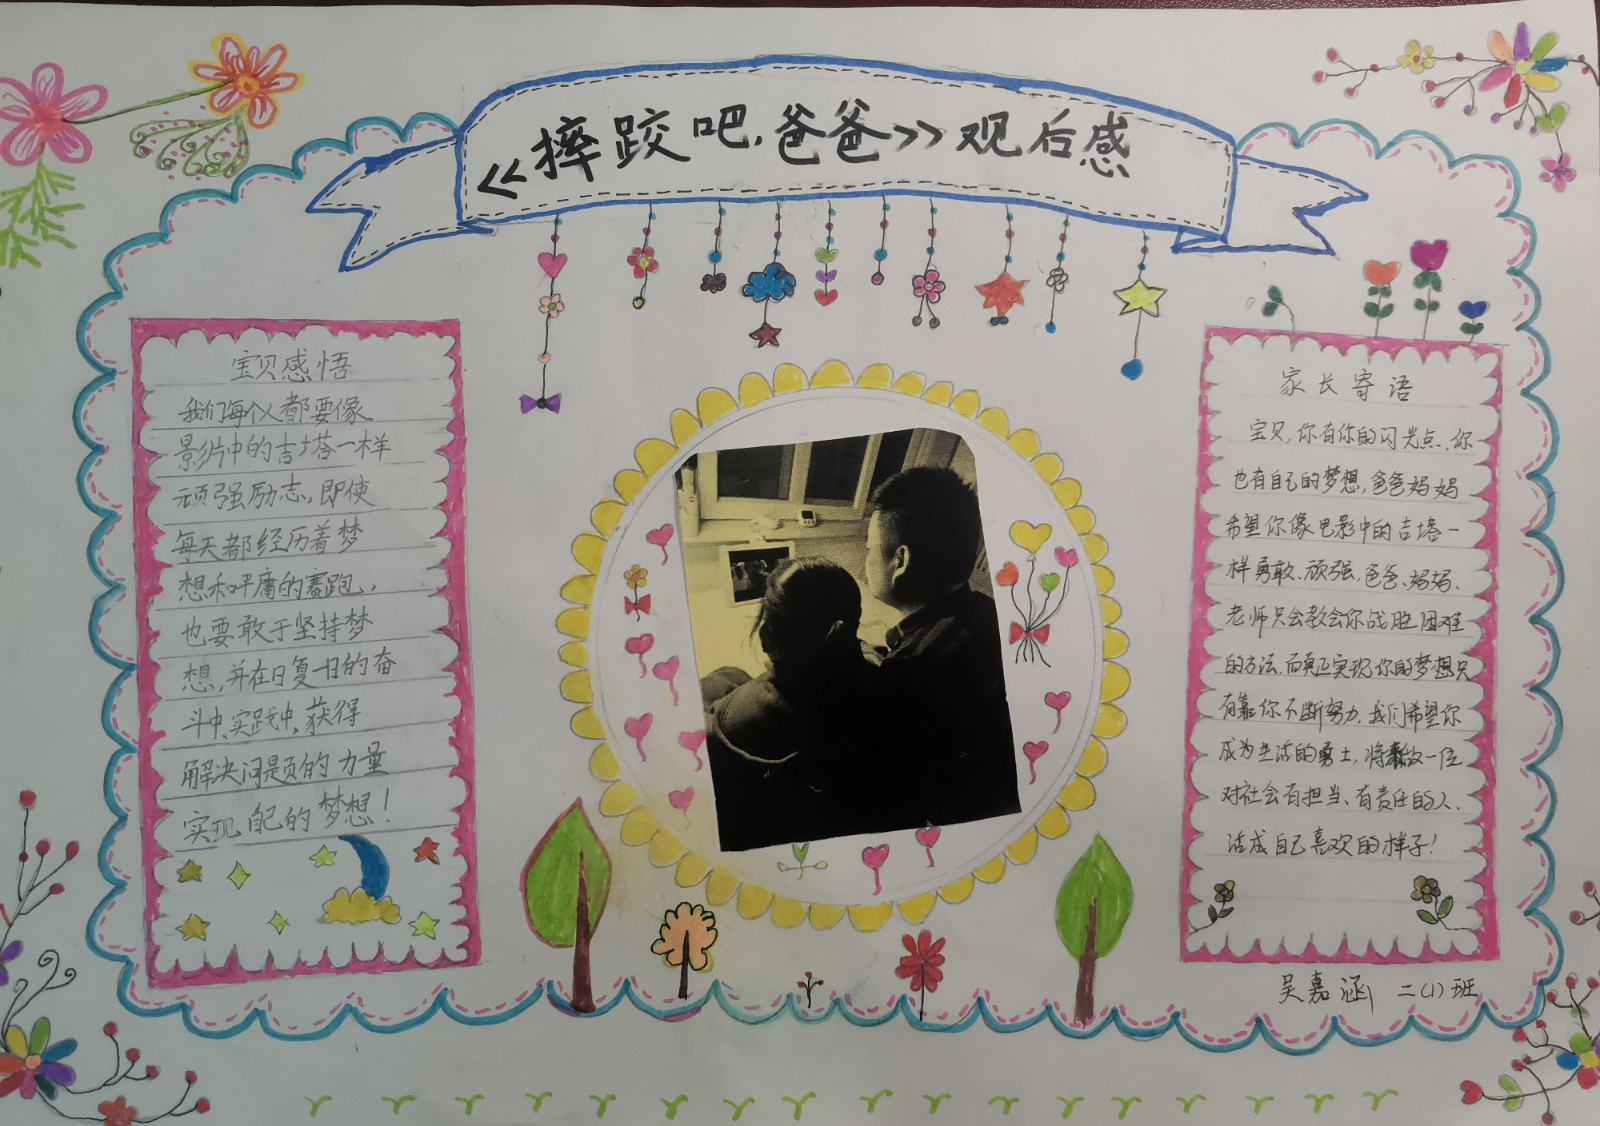 《摔跤吧,爸爸》观后感
宝贝感悟
我们每个人都要像
影片中的吉塔一样
顽强励志,即使
每天都经历着梦
想和平庸的赛跑,
也要敢于坚持梦
想,并在日复一日的奋
斗中、实践中,获得
解决问题的力量
实现自己的梦想!
家长寄语
宝贝,你有你的闪光点、你
也有自己的梦想,爸爸妈妈
希望你像电影中的吉塔一
样勇敢、顽强、爸爸、妈妈、
老师只会教会你战胜困难
的方法,而真正实现你的梦想只
有靠你不断努力,我们希望你
成为生活的勇士,将来做一位
对社会有担当、有责任的人、
活成自己喜欢的样子!
吴嘉涵 二(1)班